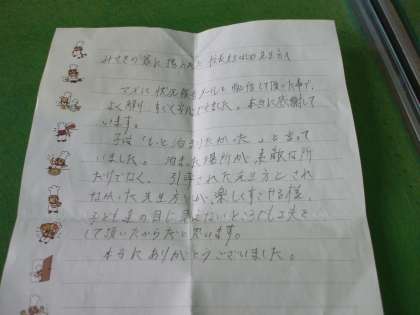 マメに状況報告メールを配信して頂いた事で、
よく解り、すごく安心できました。本当に感謝して
います。
子供「もっと泊まりたかった」と言って
いました。泊まった場所が素敵な所
だけでなく、引率された先生方とされ
なかった先生方が、楽しくすごせる様、
子ども達の目に見えないところでも工夫を
して頂いたからだと思います。
本当にありがとうございました。